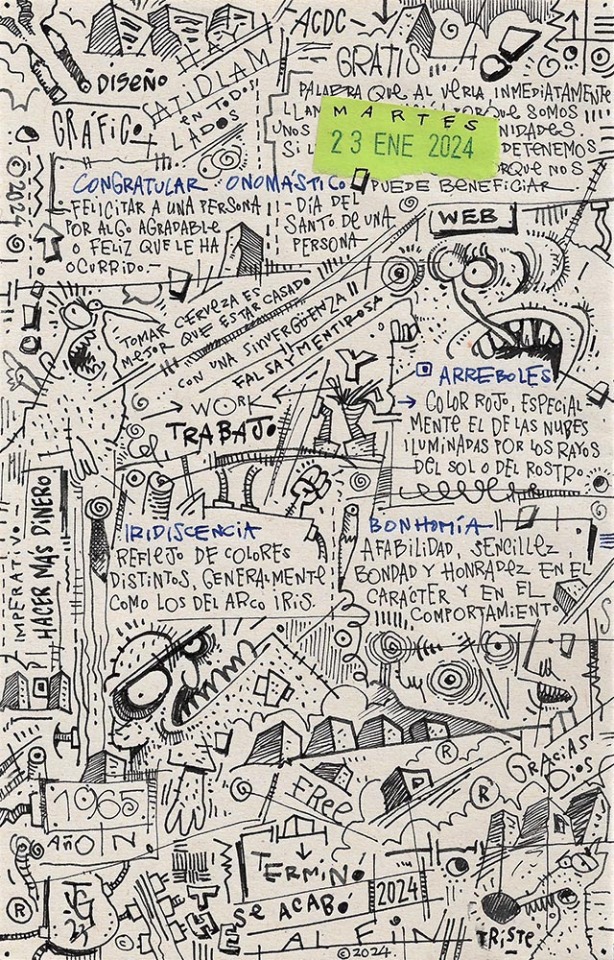 ACDC-
GRATIS
DISEÑO
GRÁFICO
HAY
SATIDLAM
EN TODOS
LADOS
PALABRA QUE AL VERLA INMEDIATAMENTE
PORQUE SOMOS
UNOS
SI
DETENEMOS
PORQUE NOS
PUEDE BENEFICIAR
MARTES
23 ENE 2024
©2024
CONGRATULAR
-FELICITAR A UNA PERSONA
POR ALGO AGRADABLE
O FELIZ QUE LE HA
OCURRIDO.-
ONOMÁSTICO
-DÍA DEL
SANTO DE UNA
PERSONA-
WEB
TOMAR CERVEZA ES
MEJOR QUE ESTAR CASADO
CON UNA SINVERGÜENZA
FALSA Y MENTIROSA
WORK
TRABAJO
ARREBOLES
COLOR ROJO, ESPECIAL
MENTE EL DE LAS NUBES
ILUMINADAS POR LOS RAYOS
DEL SOL O DEL ROSTRO.
IMPERATIVO
HACER MÁS DINERO
IRIDISCENCIA
REFLEJO DE COLORES
DISTINTOS, GENERALMENTE
COMO LOS DEL ARCO IRIS.
BONHOMÍA
AFABILIDAD, SENCILLEZ,
BONDAD Y HONRADEZ EN EL
CARÁCTER Y EN EL
COMPORTAMIENTO
GRACIAS
DIOS
®
®
FREE
1965
AÑO
TERMINÓ
SE ACABÓ
2024
AL FIN
®
©
TRISTE
©2024.